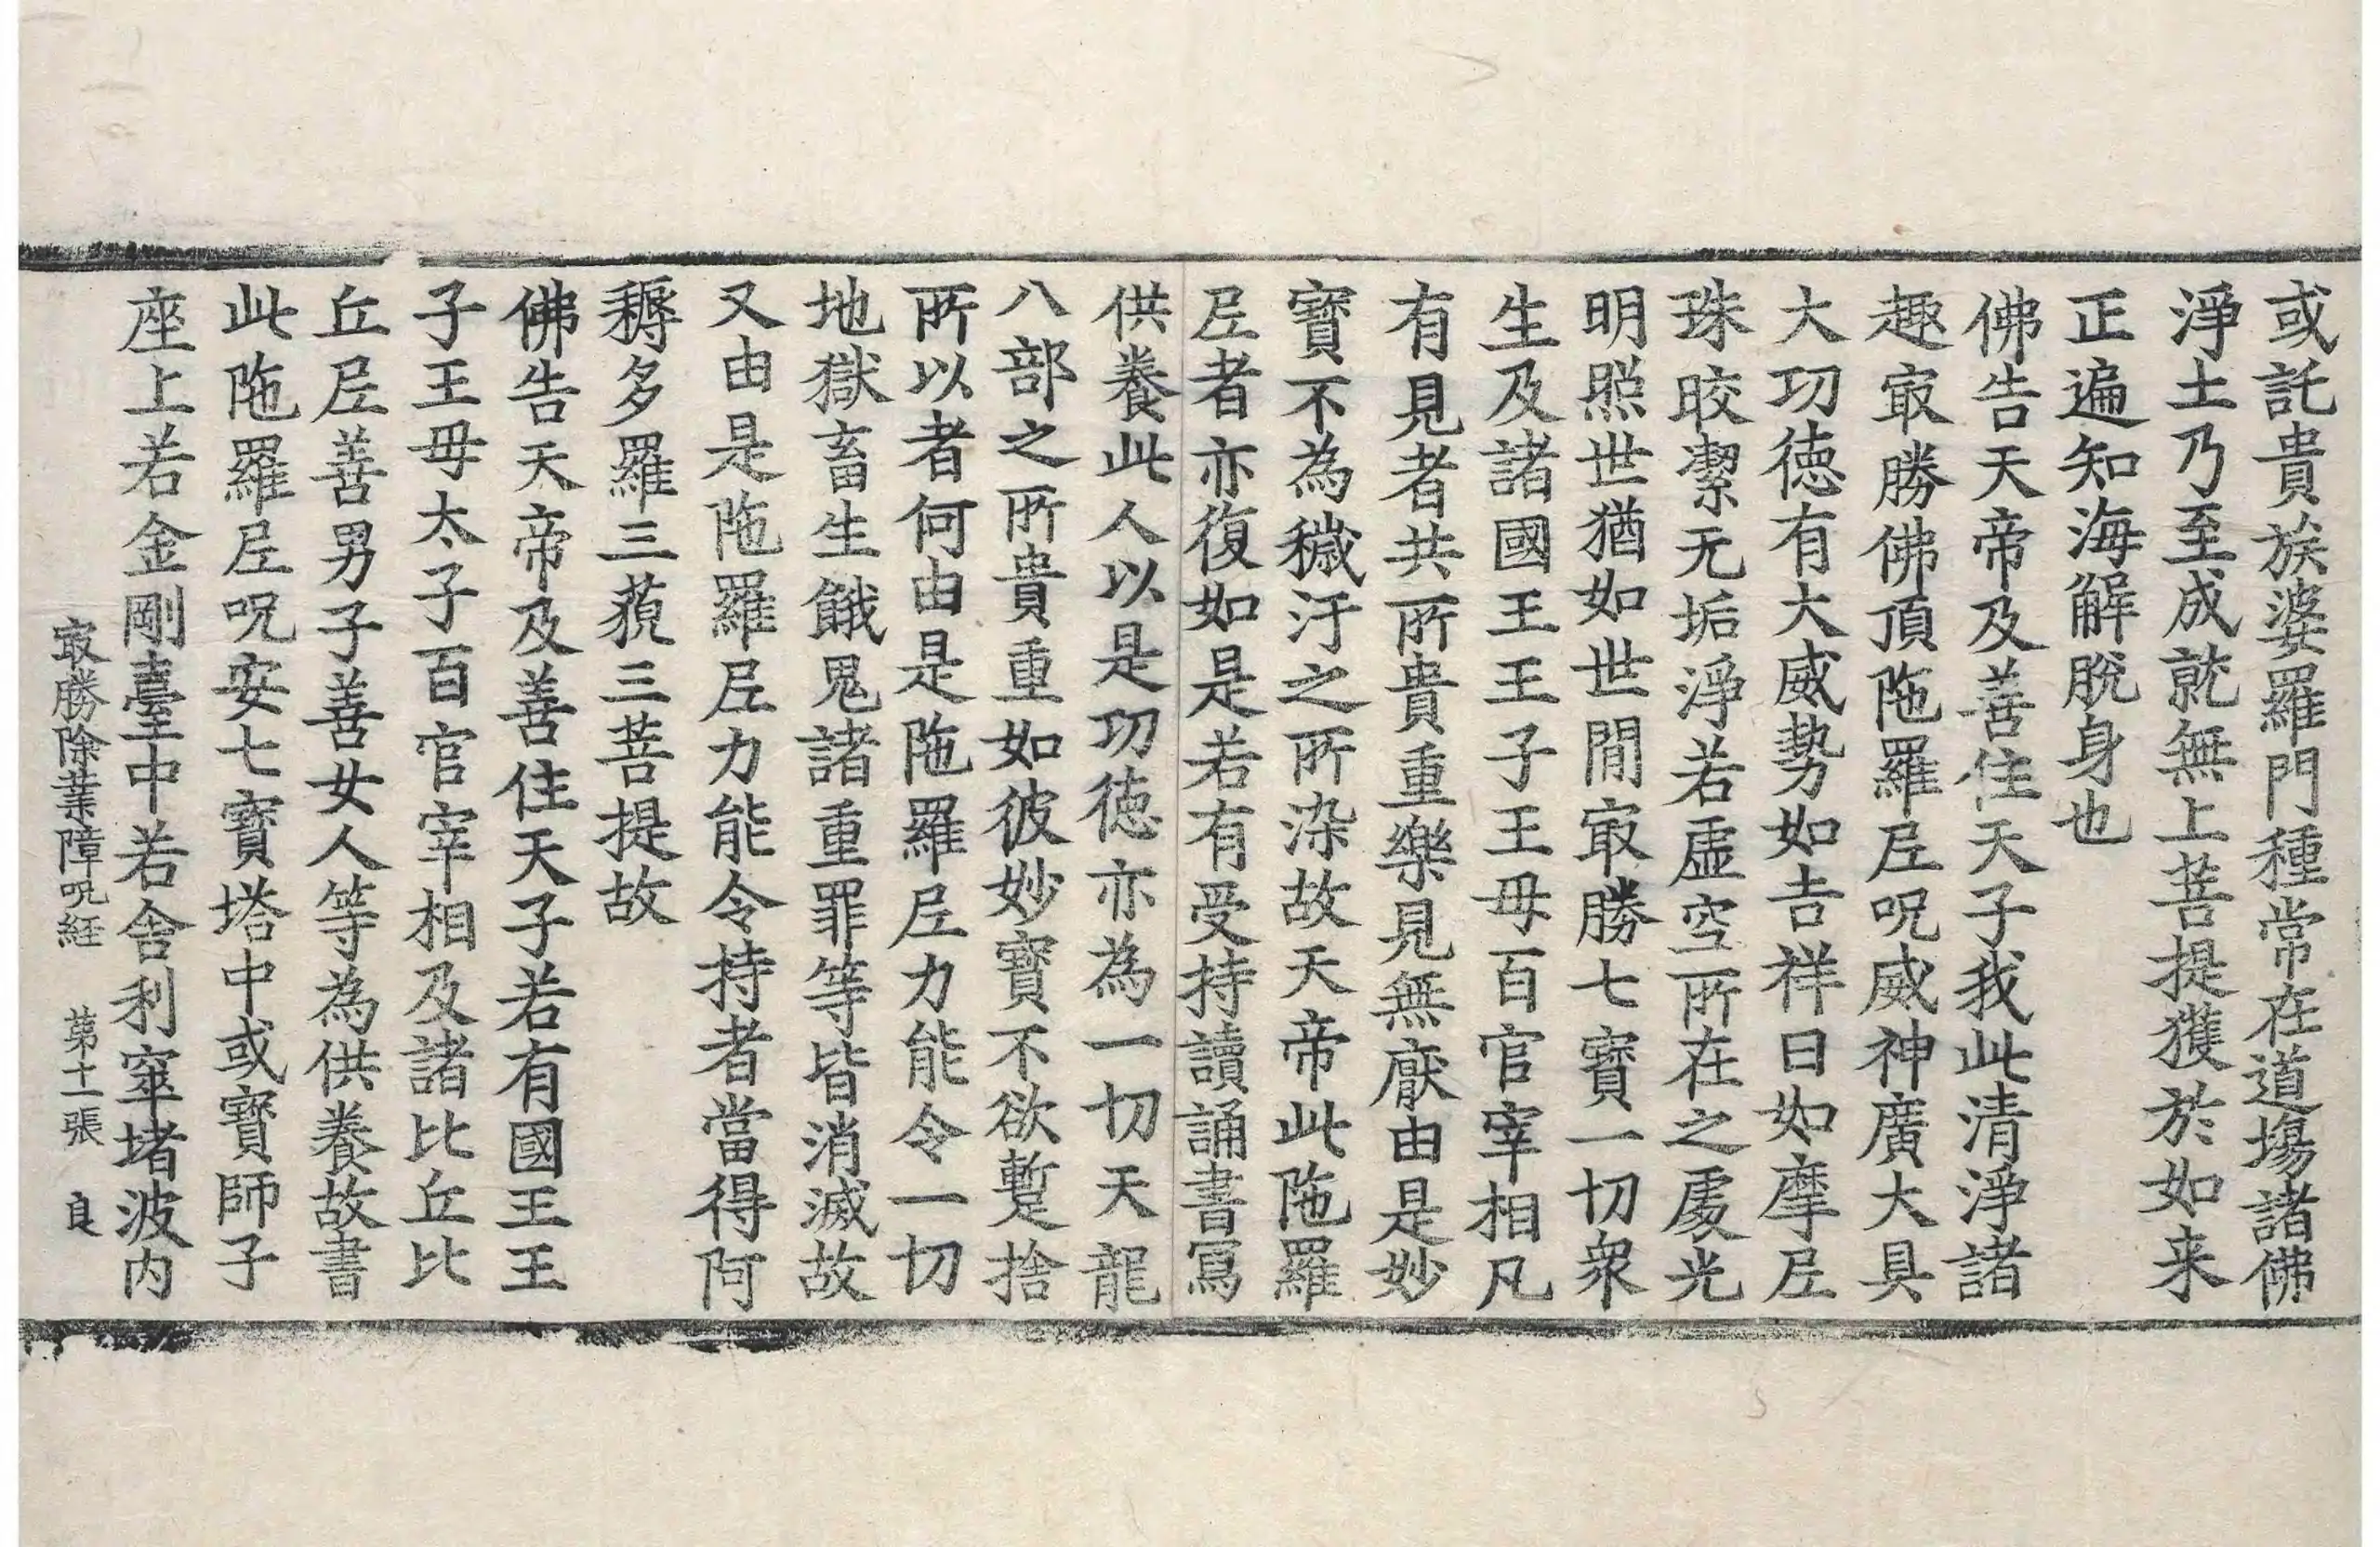 或託貴族婆羅門種常在道場諸佛
淨土乃至成就無上菩提獲於如来
正遍知海解脫身也
佛告天帝及善住天子我此清淨諸
趣㝡勝佛頂陁羅𡰱呪威神廣大具
大功德有大威勢如吉祥日如摩𡰱
珠晈潔无垢淨若虛空所在之處光
明照世猶如世閒㝡勝七寶一切衆
生及諸國王王子王毋百官宰相凡
有見者共所貴重樂見無厭由是妙
寶不為穢汙之所染故天帝此陁羅
𡰱者亦復如是若有受持讀誦書寫
供養此人以是功德亦為一切天龍
八部之所貴重如彼妙寶不欲蹔捨
所以者何由是陁羅𡰱力能令一切
地獄畜生餓鬼諸重罪等皆消滅故
又由是陁羅𡰱力能令持者當得阿
耨多羅三藐三菩提故
佛告天帝及善住天子若有國王王
子王毋太子百官宰相及諸比丘比
丘𡰱善男子善女人等為供養故書
此陁羅𡰱呪安七寶塔中或寶師子
座上若金剛臺中若舍利窣堵波内
㝡勝除業障呪経 苐十一張 良